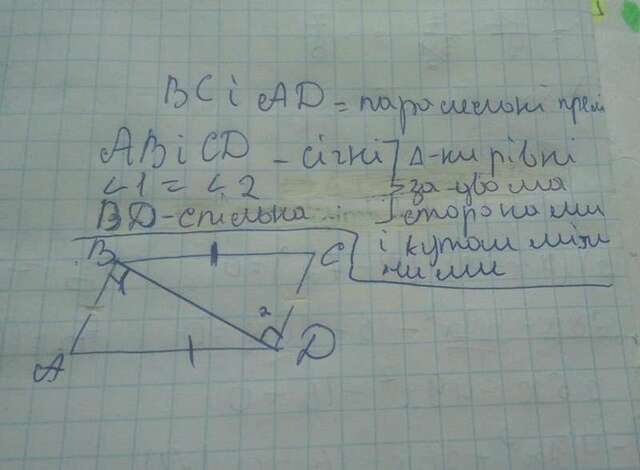 BC і AD = паралельні прямі
AB і CD - січні Δ-ки рівні
∠1 = ∠2 за двома
BD - спільна сторонами
і кутом між
ними
B C
1 2
A D